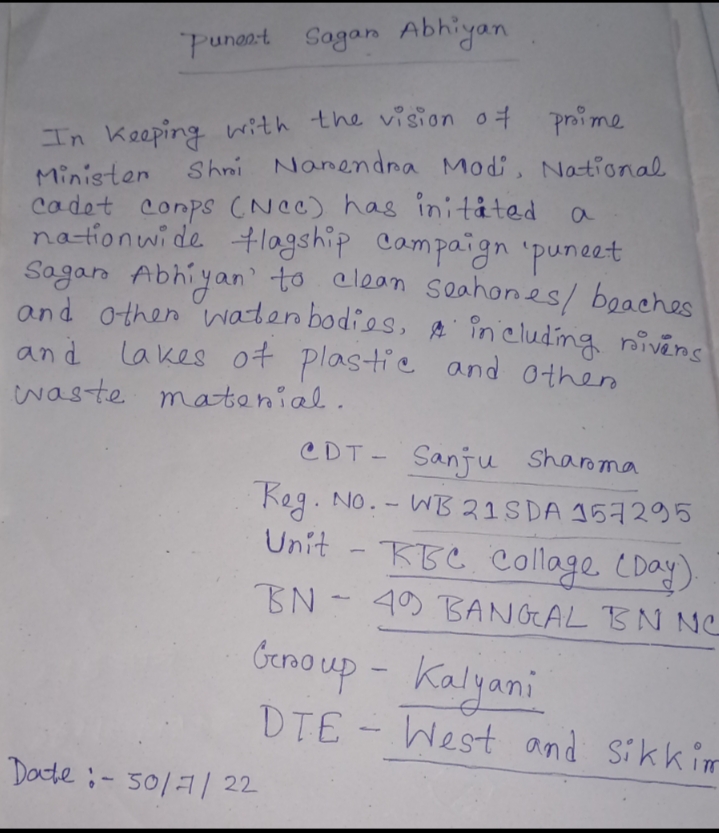 Puneet Sagar Abhiyan
In keeping with the vision of prime
Minister Shri Narendra Modi, National
cadet corps (NCC) has initated a
nationwide flagship campaign 'puneet
Sagar Abhiyan' to clean seahores/ beaches
and other waterbodies, including rivers
and lakes of plastic and other
waste material.
CDT - Sanju Sharma
Reg. No. - WB21SDA157295
Unit - RBC Collage (Day)
BN - 49 BANGAL BN NC
Group - Kalyani
DTE - West and Sikkim
Date :- 50/7/22